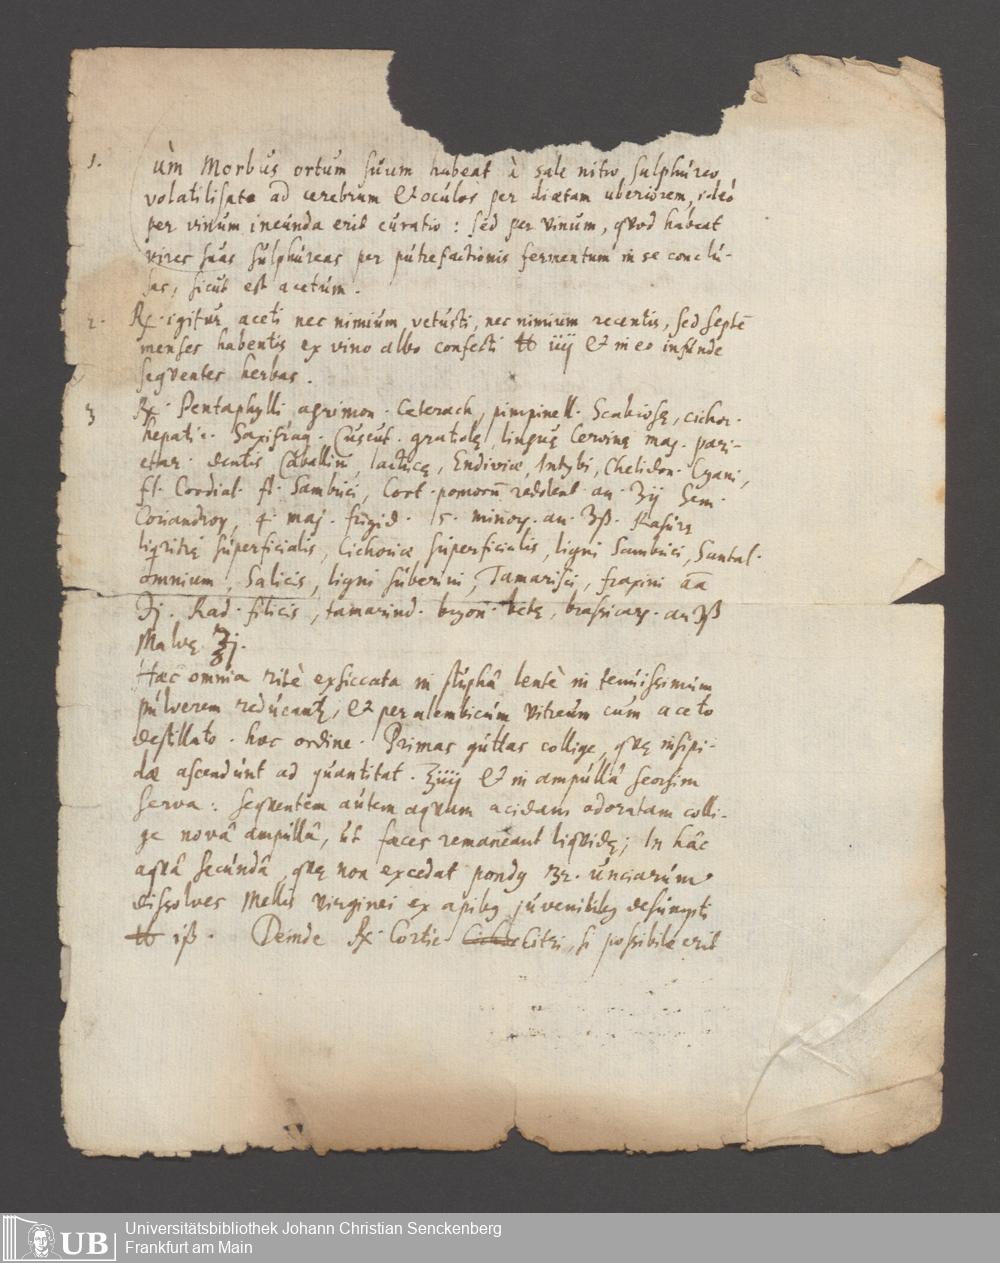 1. Cùm Morbus ortum suum habeat à sale nitro sulphureo
volatilisato ad cerebrum & oculos per diætam uberiorem, ideò
per vinum ineunda erit curatio: sed per vinum, quod habeat
vires suas sulphureas per putrefactionis fermentum in se conclu-
sas, sicut est acetum.
2. ℞. igitur aceti nec nimium vetusti, nec nimium recentis, sed septē
menses habentis ex vino albo confecti ℔ iiij & in eo infunde
sequentes herbas.
3 ℞. Pentaphylli agrimon. Ceterach, pimpinell. Scabiosę, cichor.
hepatic. Saxifrag. Cuscut. gratolę, linguę Cervinę maj. pari-
etar. dentis Caballini, lactucę, Endiviæ, Intybi, Chelidon. Cyani,
fl. Cordial. fl. Sambuci, Cort. pomorū redolent. an. ʒij Sem.
Coriandror, 4. maj. frigid. 5. minor. an. ʒß. Rasurę
liqritię superficialis, Cichoriæ superficialis, ligni Sambuci, Santal.
omnium, Salicis, ligni suberini, Tamarisci, fraxini āā
ʒj. Rad. filicis, tamarind. bryon. betę, brassicar. an ʒß
Malvę ℥j.
Hæc omnia ritè exsiccata in stuphâ lentè in tenuissimum
pulverem reducantr, & per alembicum vitreum cum aceto
destillato. hoc ordine. Primas guttas collige, quę insipi-
dæ ascendunt ad quantitat. ℥iiij & in ampullâ seorsim
serva: sequentem autem aquam acidam odoratam colli-
ge novâ ampullâ, ut fæces remaneant liquidę; In hâc
aquâ secundâ, quę non excedat pondus 32. unciarum
dissolves Mellis virginei ex apibus juvenibus desumpti
℔ iß. Deinde ℞. Cortic. Citri, si possibile erit
Universitätsbibliothek Johann Christian Senckenberg
Frankfurt am Main
UB